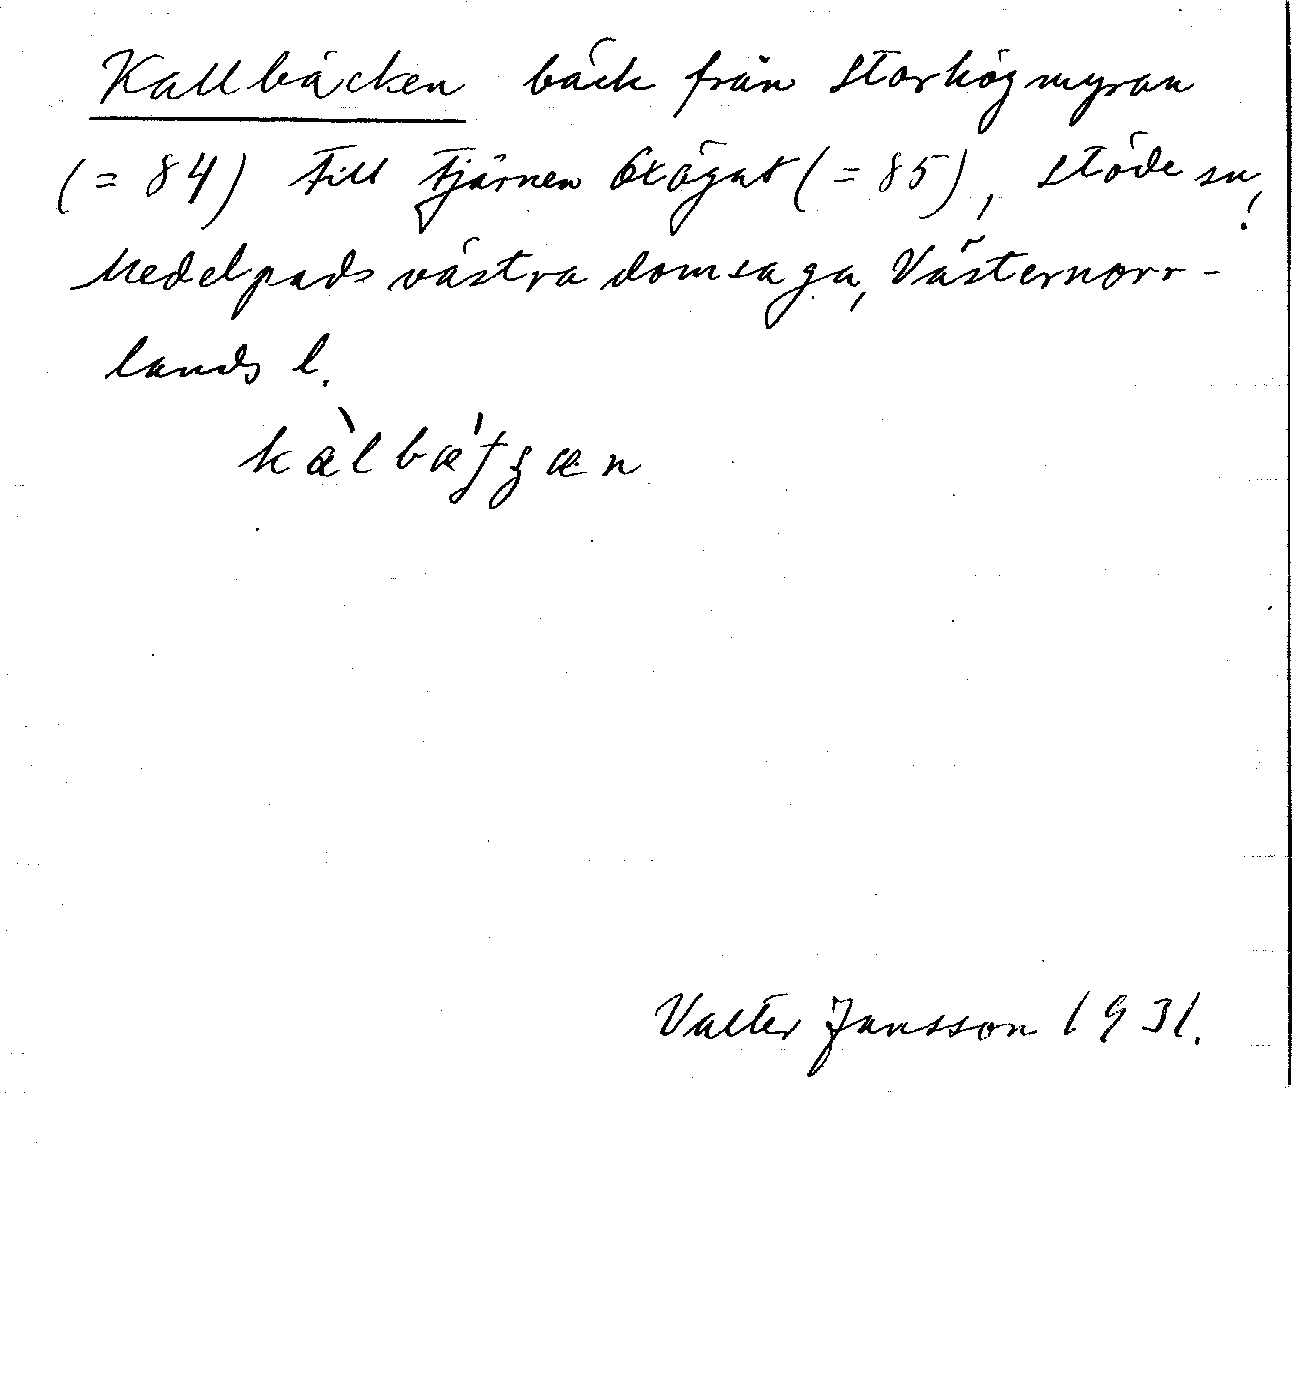 Kallbäcken bäck från Storhögmyran
(= 84) till tjärnen Oxögat (= 85), Stöde sn,
Medelpads västra domsaga, Västernorr-
lands l.
Valter Jansson 1931.